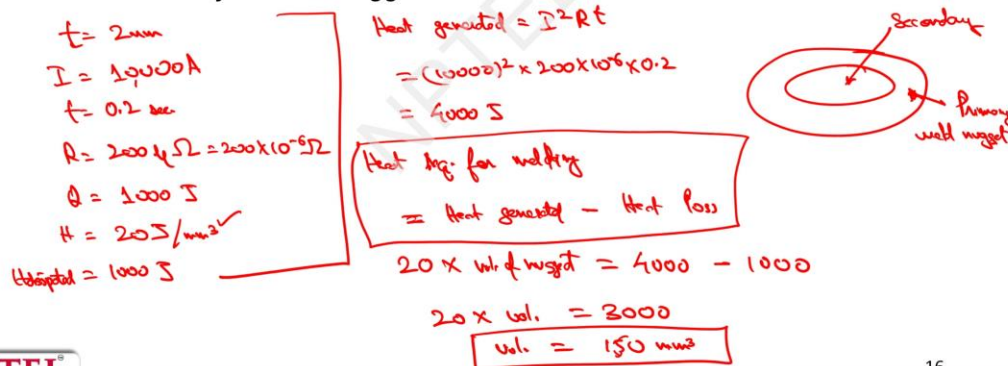 t = 2mm
I = 10,000A
t = 0.2 sec
R = 200 μΩ = 200×10⁻⁶Ω
Q = 1000 J
H = 20 J/mm³ ✓
= 1000 J
Heat generated = I²Rt
= (10000)² × 200×10⁻⁶ × 0.2
= 4000 J
Heat req. for melting
= Heat generated – Heat loss
20 × vol. of nugget = 4000 – 1000
20 × vol. = 3000
vol. = 150 mm³
Secondary
Primary
weld nugget
NPTEL
16